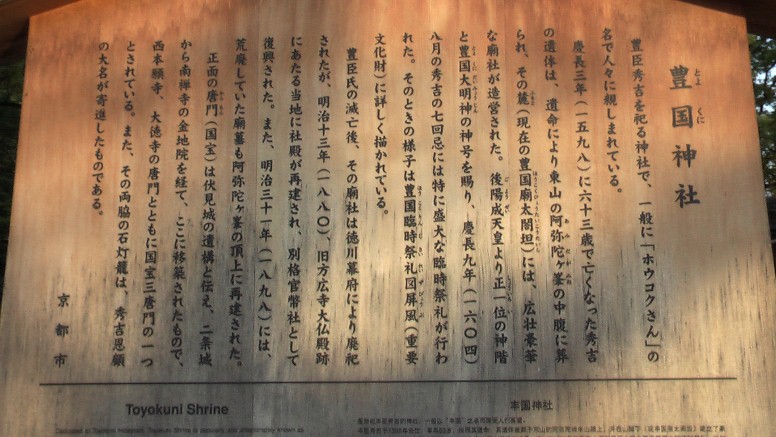 豊国神社
豊臣秀吉を祀る神社で、一般に「ホウコクさん」の
名で人々に親しまれている。
慶長三年(一五九八)に六十三歳で亡くなった秀吉
の遺体は、遺命により東山の阿弥陀ヶ峯の中腹に葬
られ、その麓(現在の豊国廟太閤坦)には、広壮豪華
な廟社が造営された。後陽成天皇より正一位の神階
と豊国大明神の神号を賜り、慶長九年(一六〇四)
八月の秀吉の七回忌には特に盛大な臨時祭礼が行わ
れた。そのときの様子は豊国臨時祭礼図屏風(重要
文化財)に詳しく描かれている。
豊臣氏の滅亡後、その廟社は徳川幕府により廃祀
されたが、明治十三年(一八八〇)、旧方広寺大仏殿跡
にあたる当地に社殿が再建され、別格官幣社として
復興された。また、明治三十一年(一八九八)には、
荒廃していた廟墓も阿弥陀ヶ峯の頂上に再建された。
正面の唐門(国宝)は伏見城の遺構と伝え、二条城
から南禅寺の金地院を経て、ここに移築されたもので、
西本願寺、大徳寺の唐門とともに国宝三唐門の一つ
とされている。また、その両脇の石灯籠は、秀吉恩顧
の大名が寄進したものである。
京都市
Toyokuni Shrine
Dedicated to Toyotomi Hideyoshi, Toyokuni Shrine is popularly and affectionately known as
丰国神社